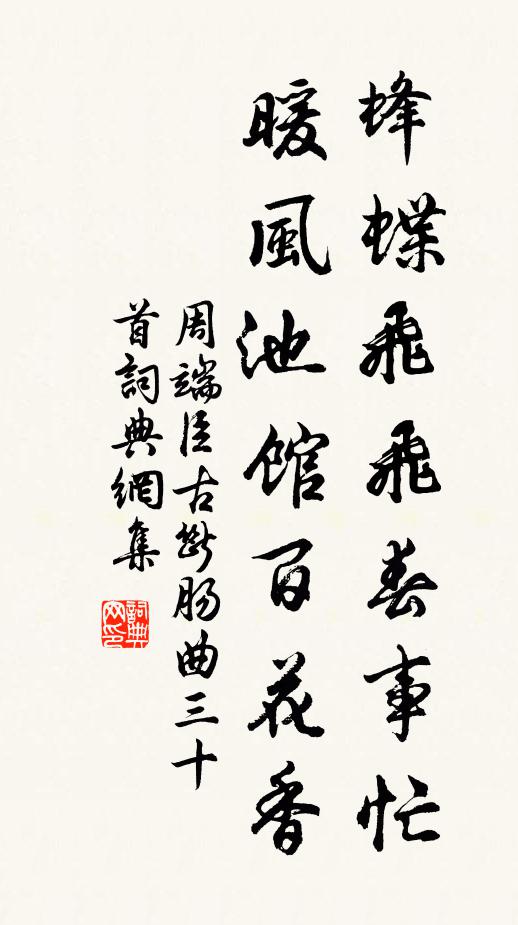 蜂蝶飛飛春事忙
暖風池館百花香
周端臣古斷腸曲三十
首詞典網集
詞典網印